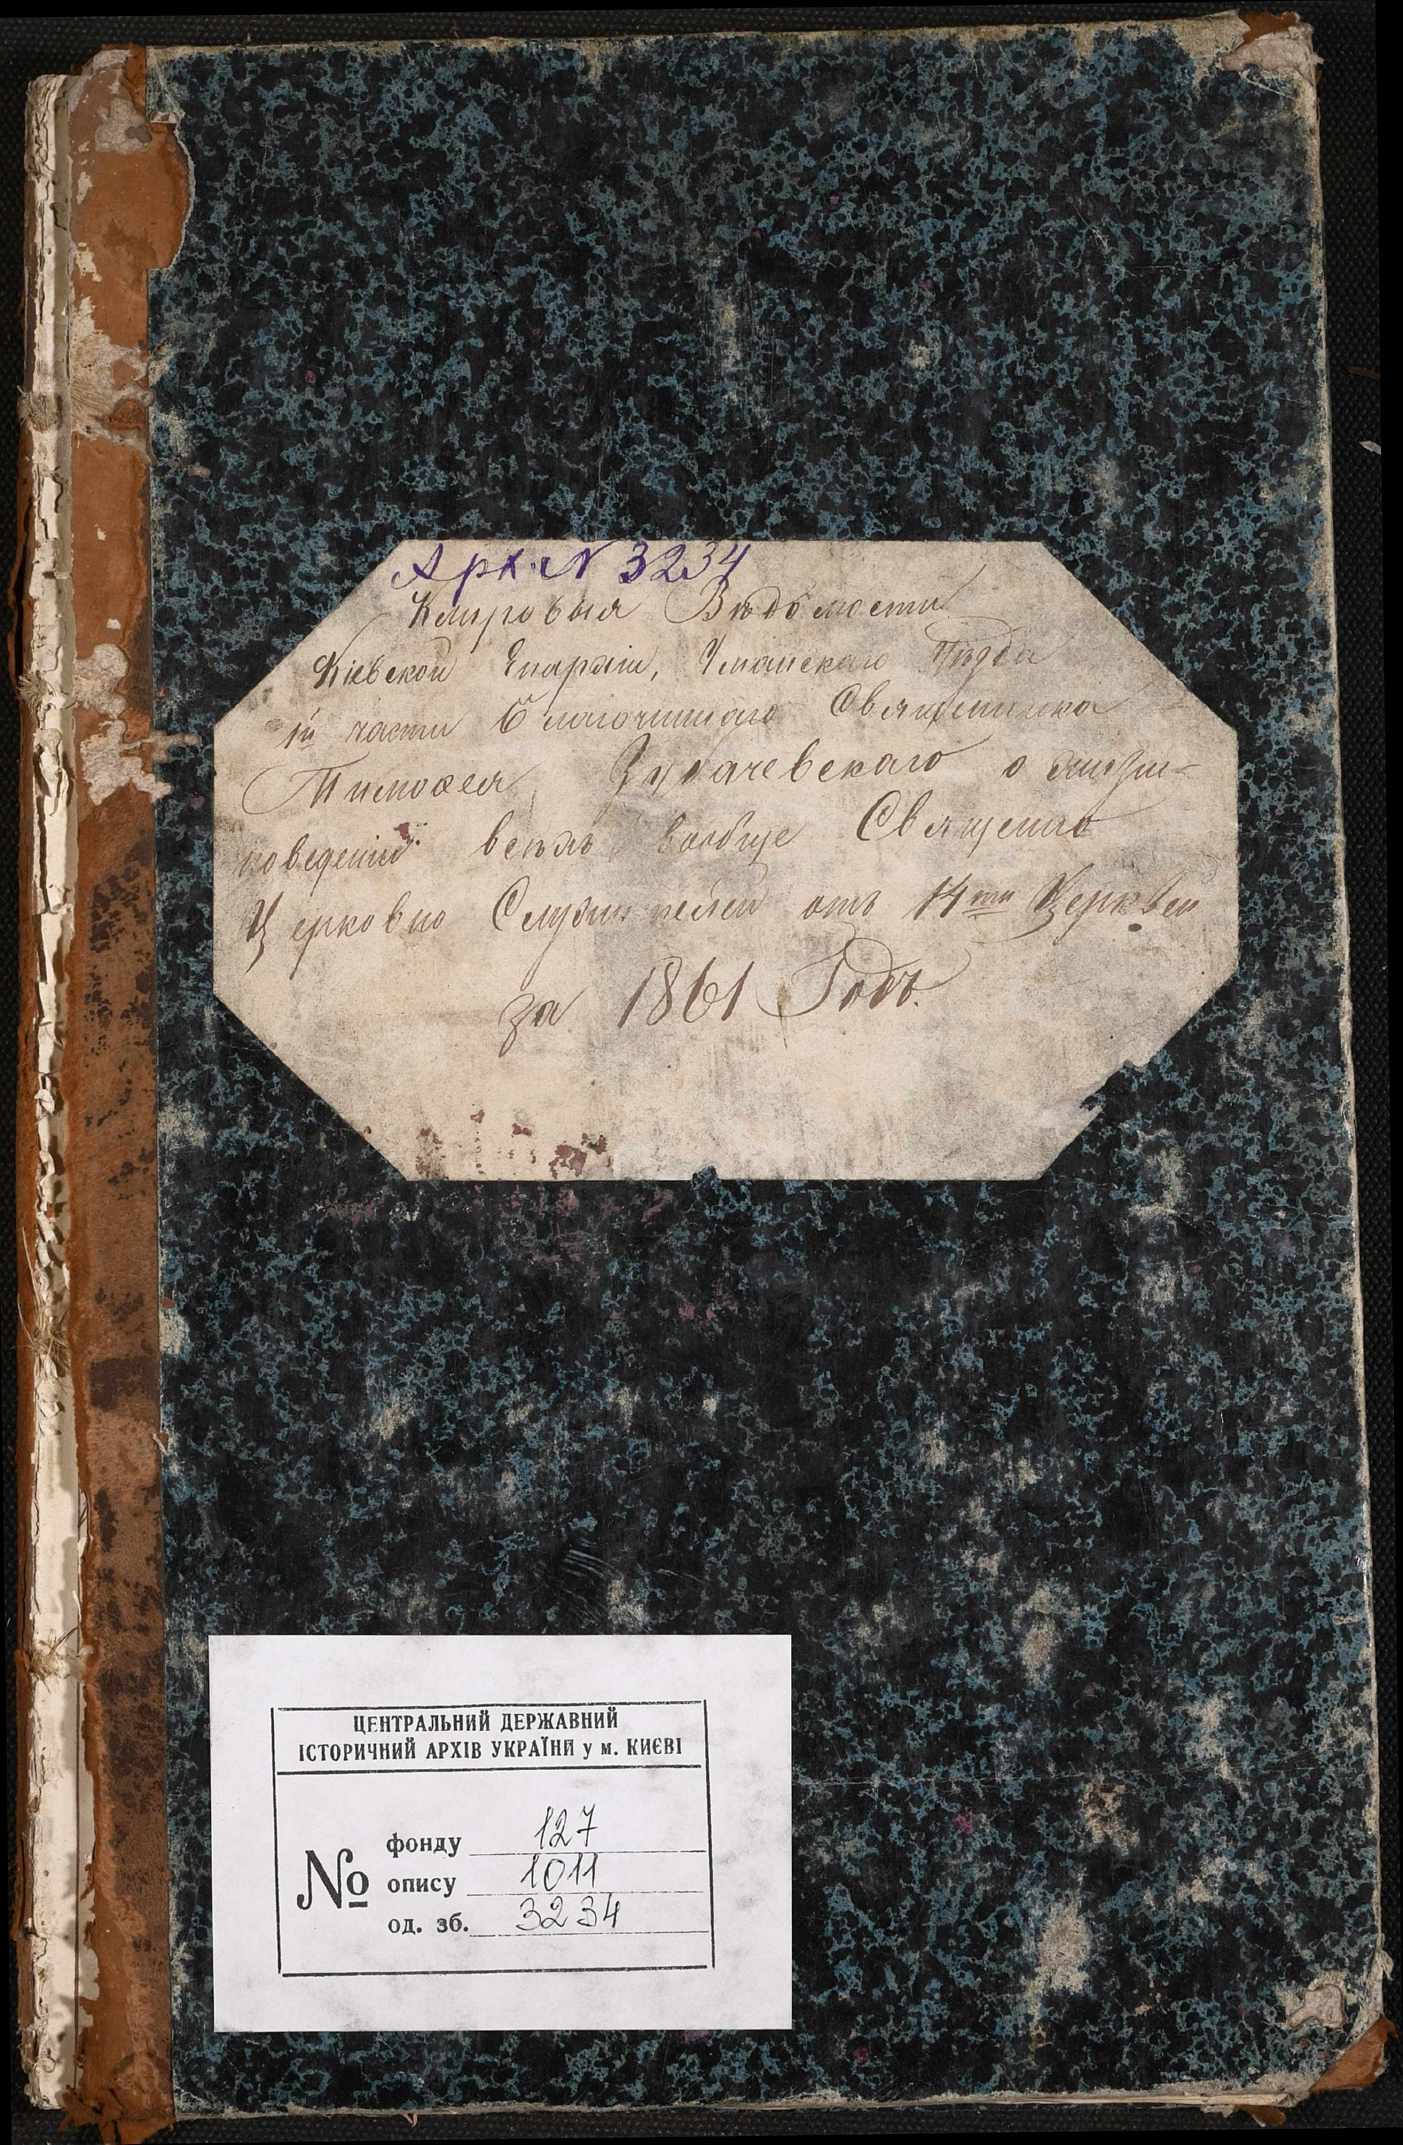 Арх. N 3234
Клировыя Вѣдомости
Кіевской Епархіи, Уманскаго Пѣвда
1й части Благочиннаго Священника
Тимофея Зубачевскаго о
поведеніи всѣхъ вообще Священно
Церковно Служителей отъ 14ти Церквей
за 1861 Годъ.
ЦЕНТРАЛЬНИЙ ДЕРЖАВНИЙ
ІСТОРИЧНИЙ АРХІВ УКРАЇНИ у м. КИЄВІ
№
фонду 127
опису 1011
од. зб. 3234